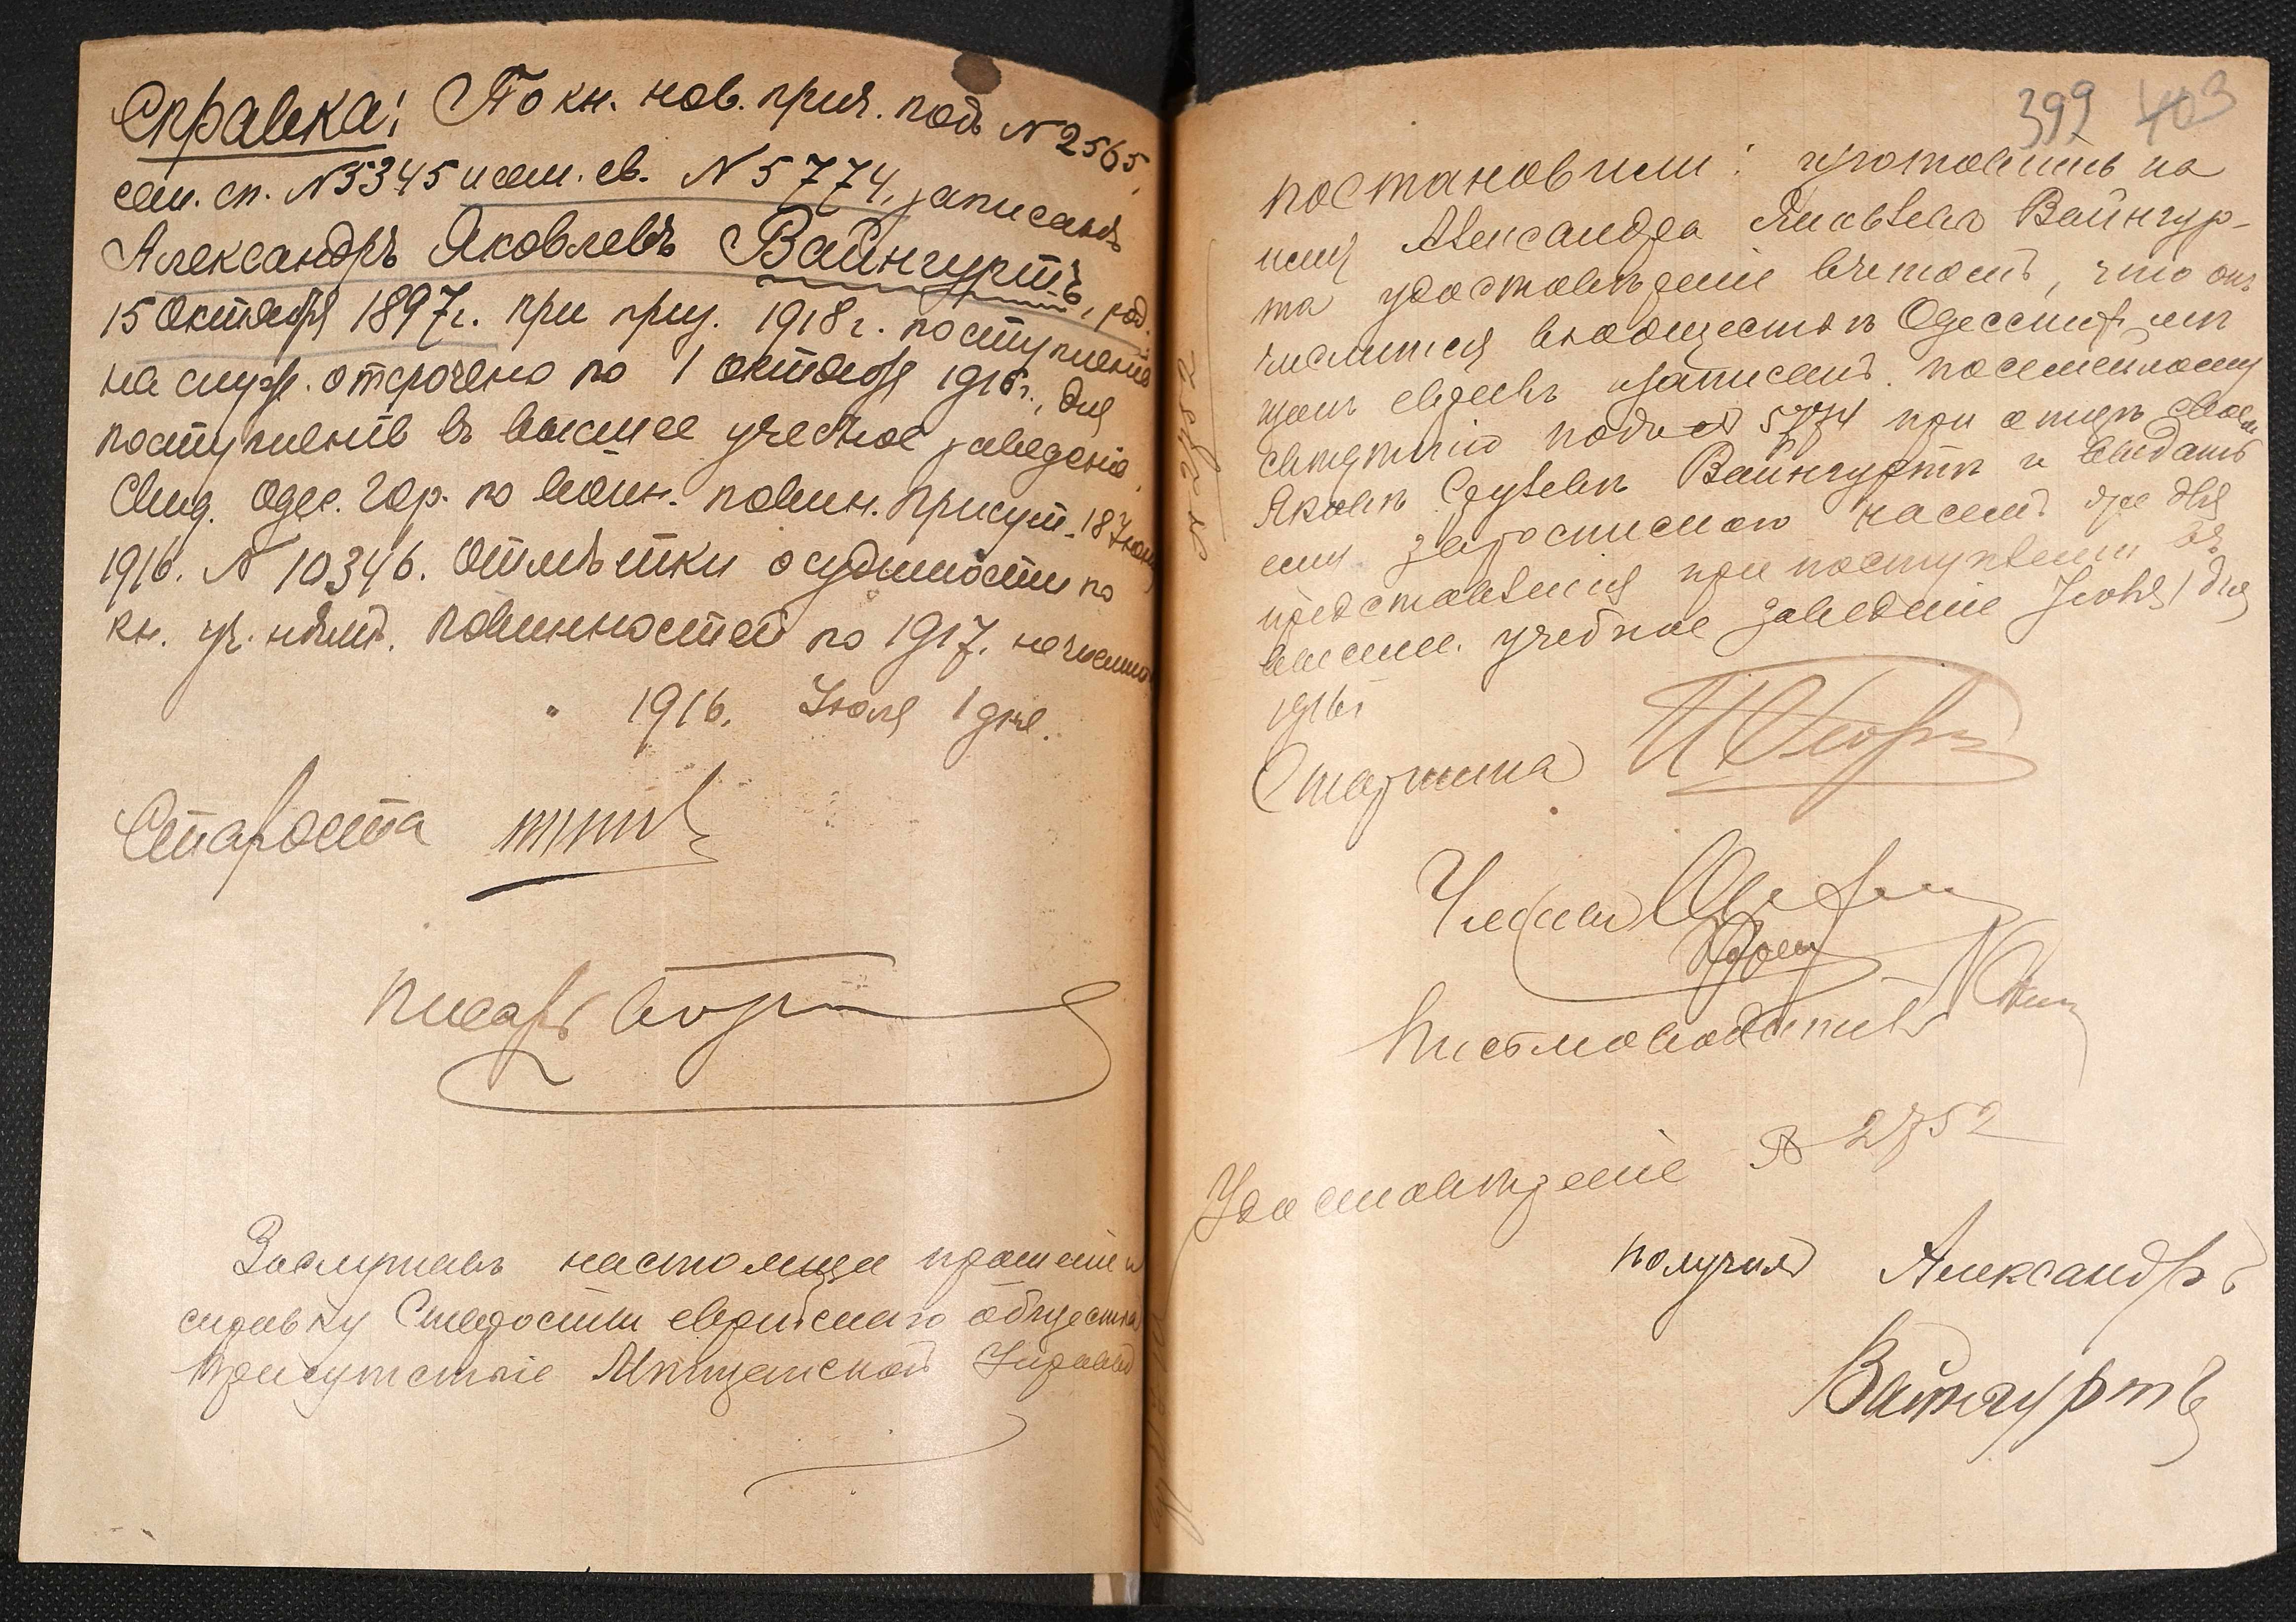 Справка: По кн. нов. прич. подъ N 2565,
сем. сп. N 5345 и сем. св. N 5774, записанъ
Александръ Яковлевъ Вайнгуртъ, род.
15 Октября 1897 г. при приз. 1918 г. поступленіе
на служ. отсрочено по 1 октября 1916 г., для
поступленія въ высшее учебное заведеніе.
Свид. Одес. Гор. по воин. повин. Присут. 18 Іюня
1916. N 10346. Отмѣтки о судимости по
кн. уч. повинностей по 1917. не числит
1916. Іюля 1 дня.
Староста
Писарь
Заслушавъ настоящее прошеніе и
справку Старосты еврейскаго общества
Присутствіе Мѣщанской Управы
399 403
постановили: изготовить на
имя Александра Яковлева Вайнгур-
та удостовѣреніе въ томъ, что онъ
числится въ обществѣ Одесских мѣ
щанъ евреевъ и записанъ по семейному
подъ N 5774 при отцѣ своемъ
Яковѣ Вайнгуртѣ и выдать
ему за роспискою для
представленія при поступленіи въ
высшее учебное заведеніе Іюля 1 дня
1916 г.
Старшина
Члены
Письмоводитель
Удостовѣреніе N 2752
получилъ Александръ
Вайнгуртъ